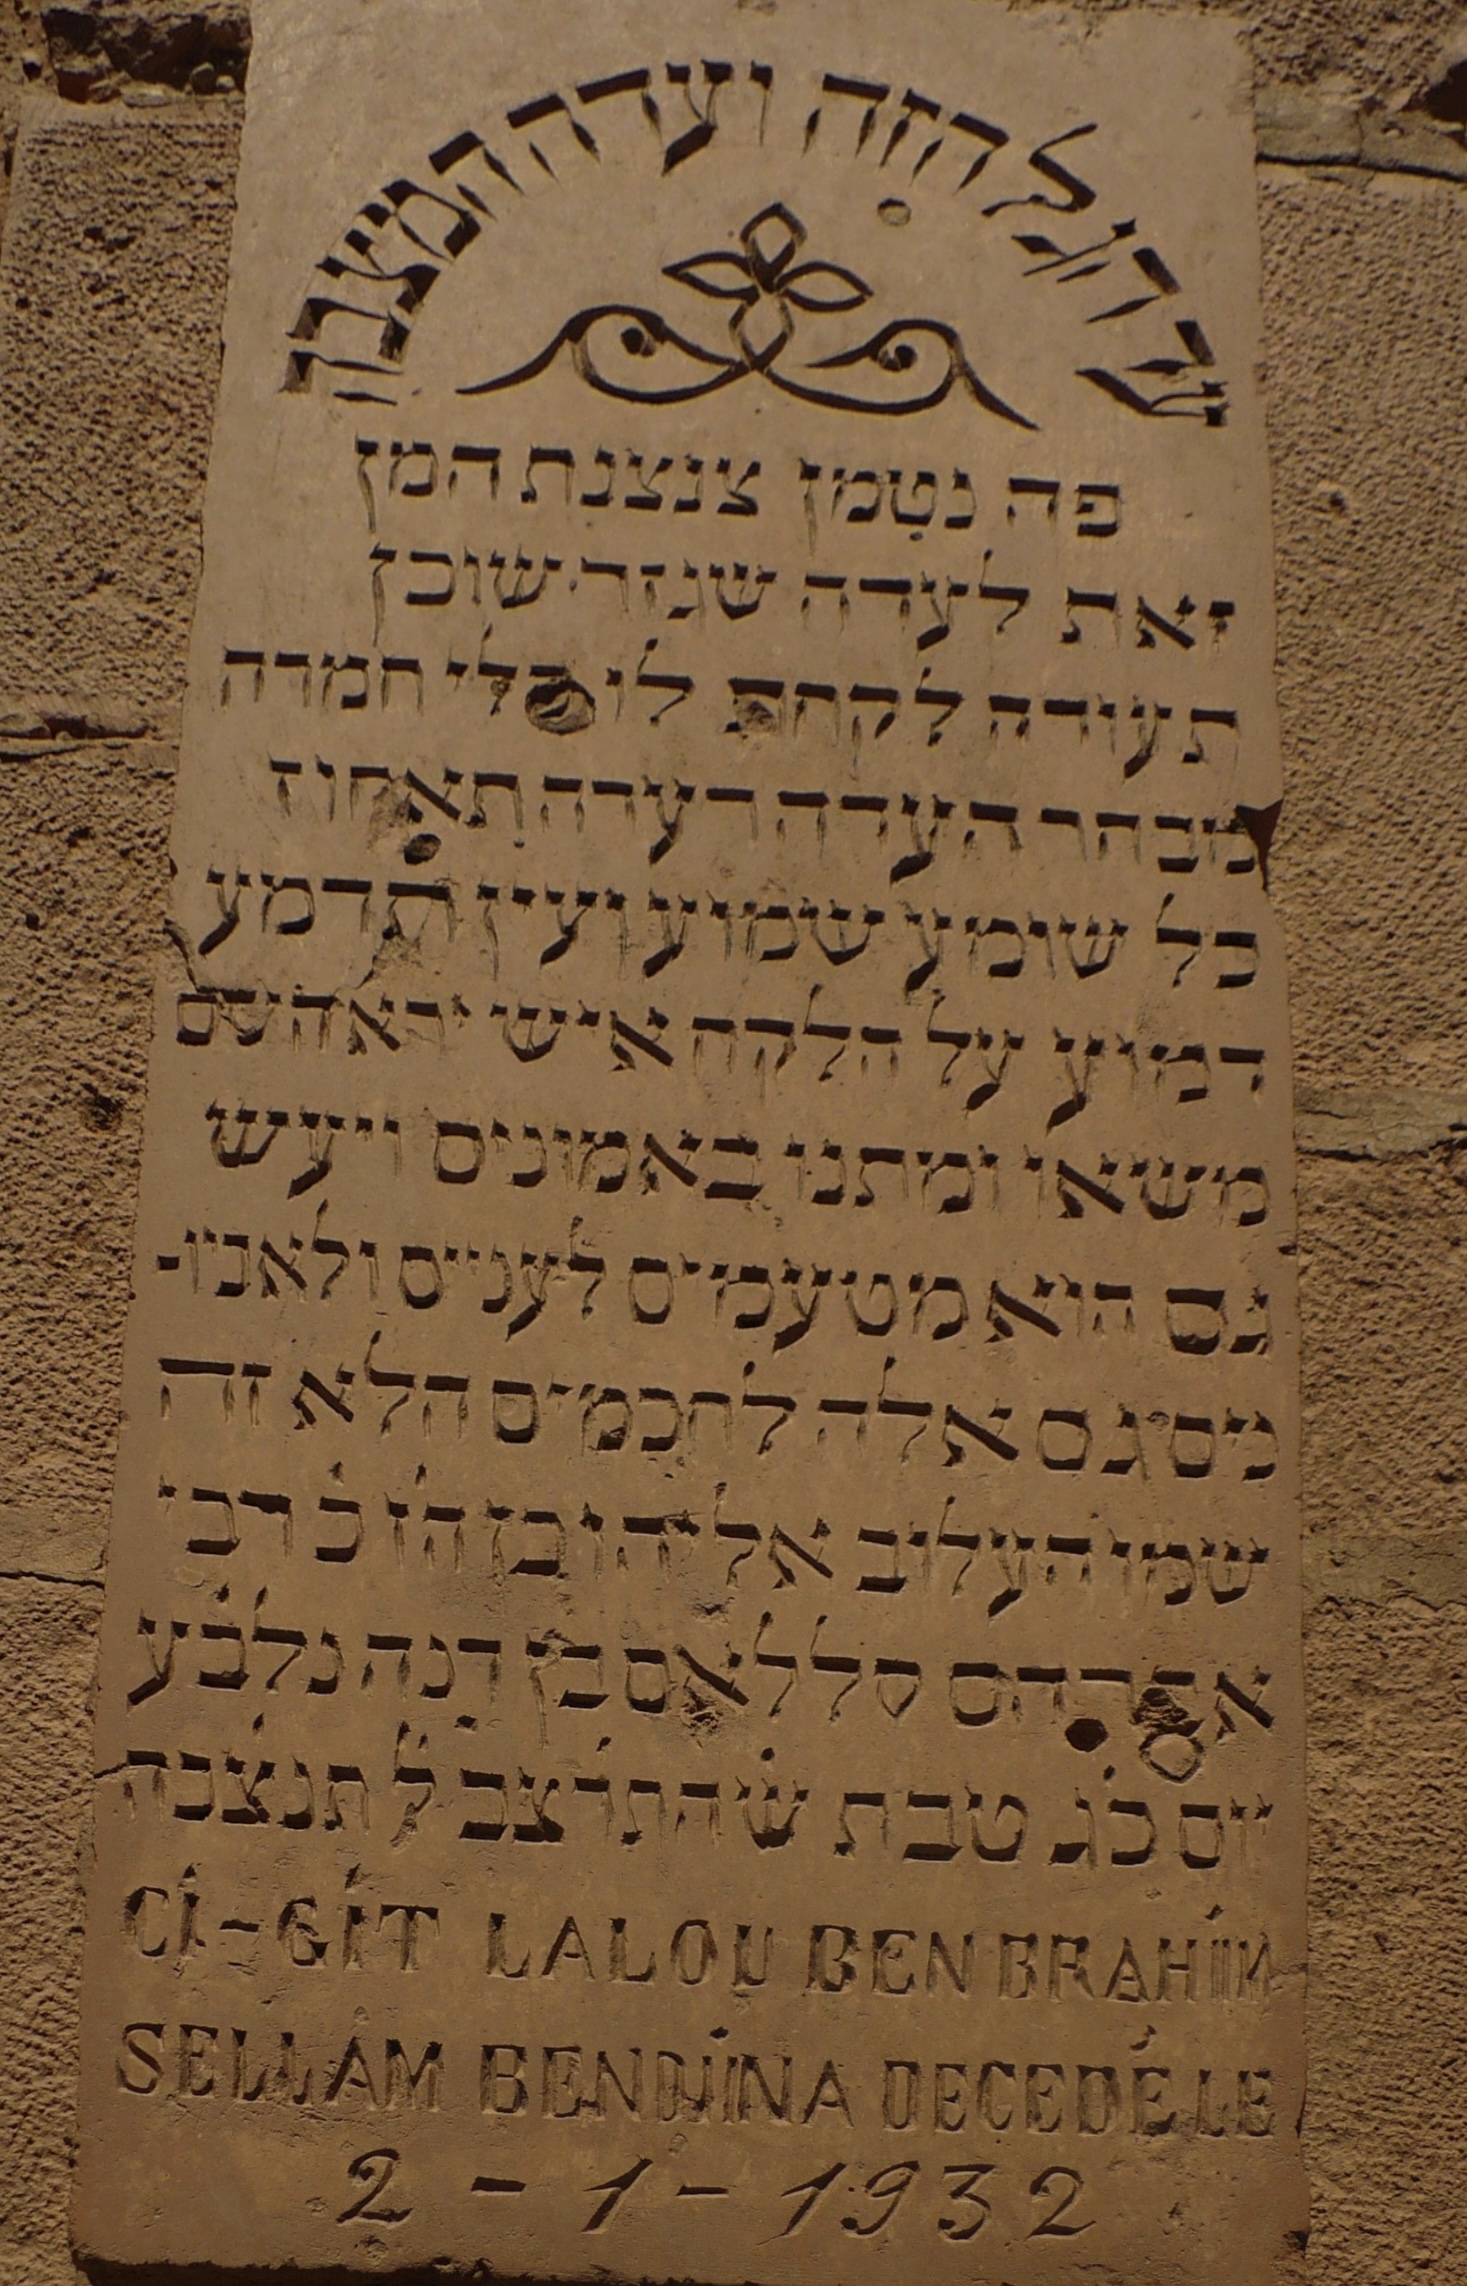 עד הגל הזה ועדה המצבה
פה נטמן צנצנת המן
זאת לעדה שגזר שוכן
תעודה לקחת לו כלי חמדה
מבהר העדה רעדה תאחוז
כל שומע שמוע ועין תדמע
דמוע על הלקח איש ירא השם
משאו ומתנו באמונים ויעש
גם הוא מטעמים לעניים ולאביו-
נים גם אלה לחכמים הלא זה
שמו העלוב אליהו בן הו׳ כ׳ רבי
אברהם סללאם בן דנה נלב׳ע
יום כ׳ג טבת ש׳ התר׳צב ל׳ תנצ׳בה
CI-GÎT LALOU BEN BRAHIM
SELLAM BENDINA DECEDÉ LE
2 - 1 - 1932